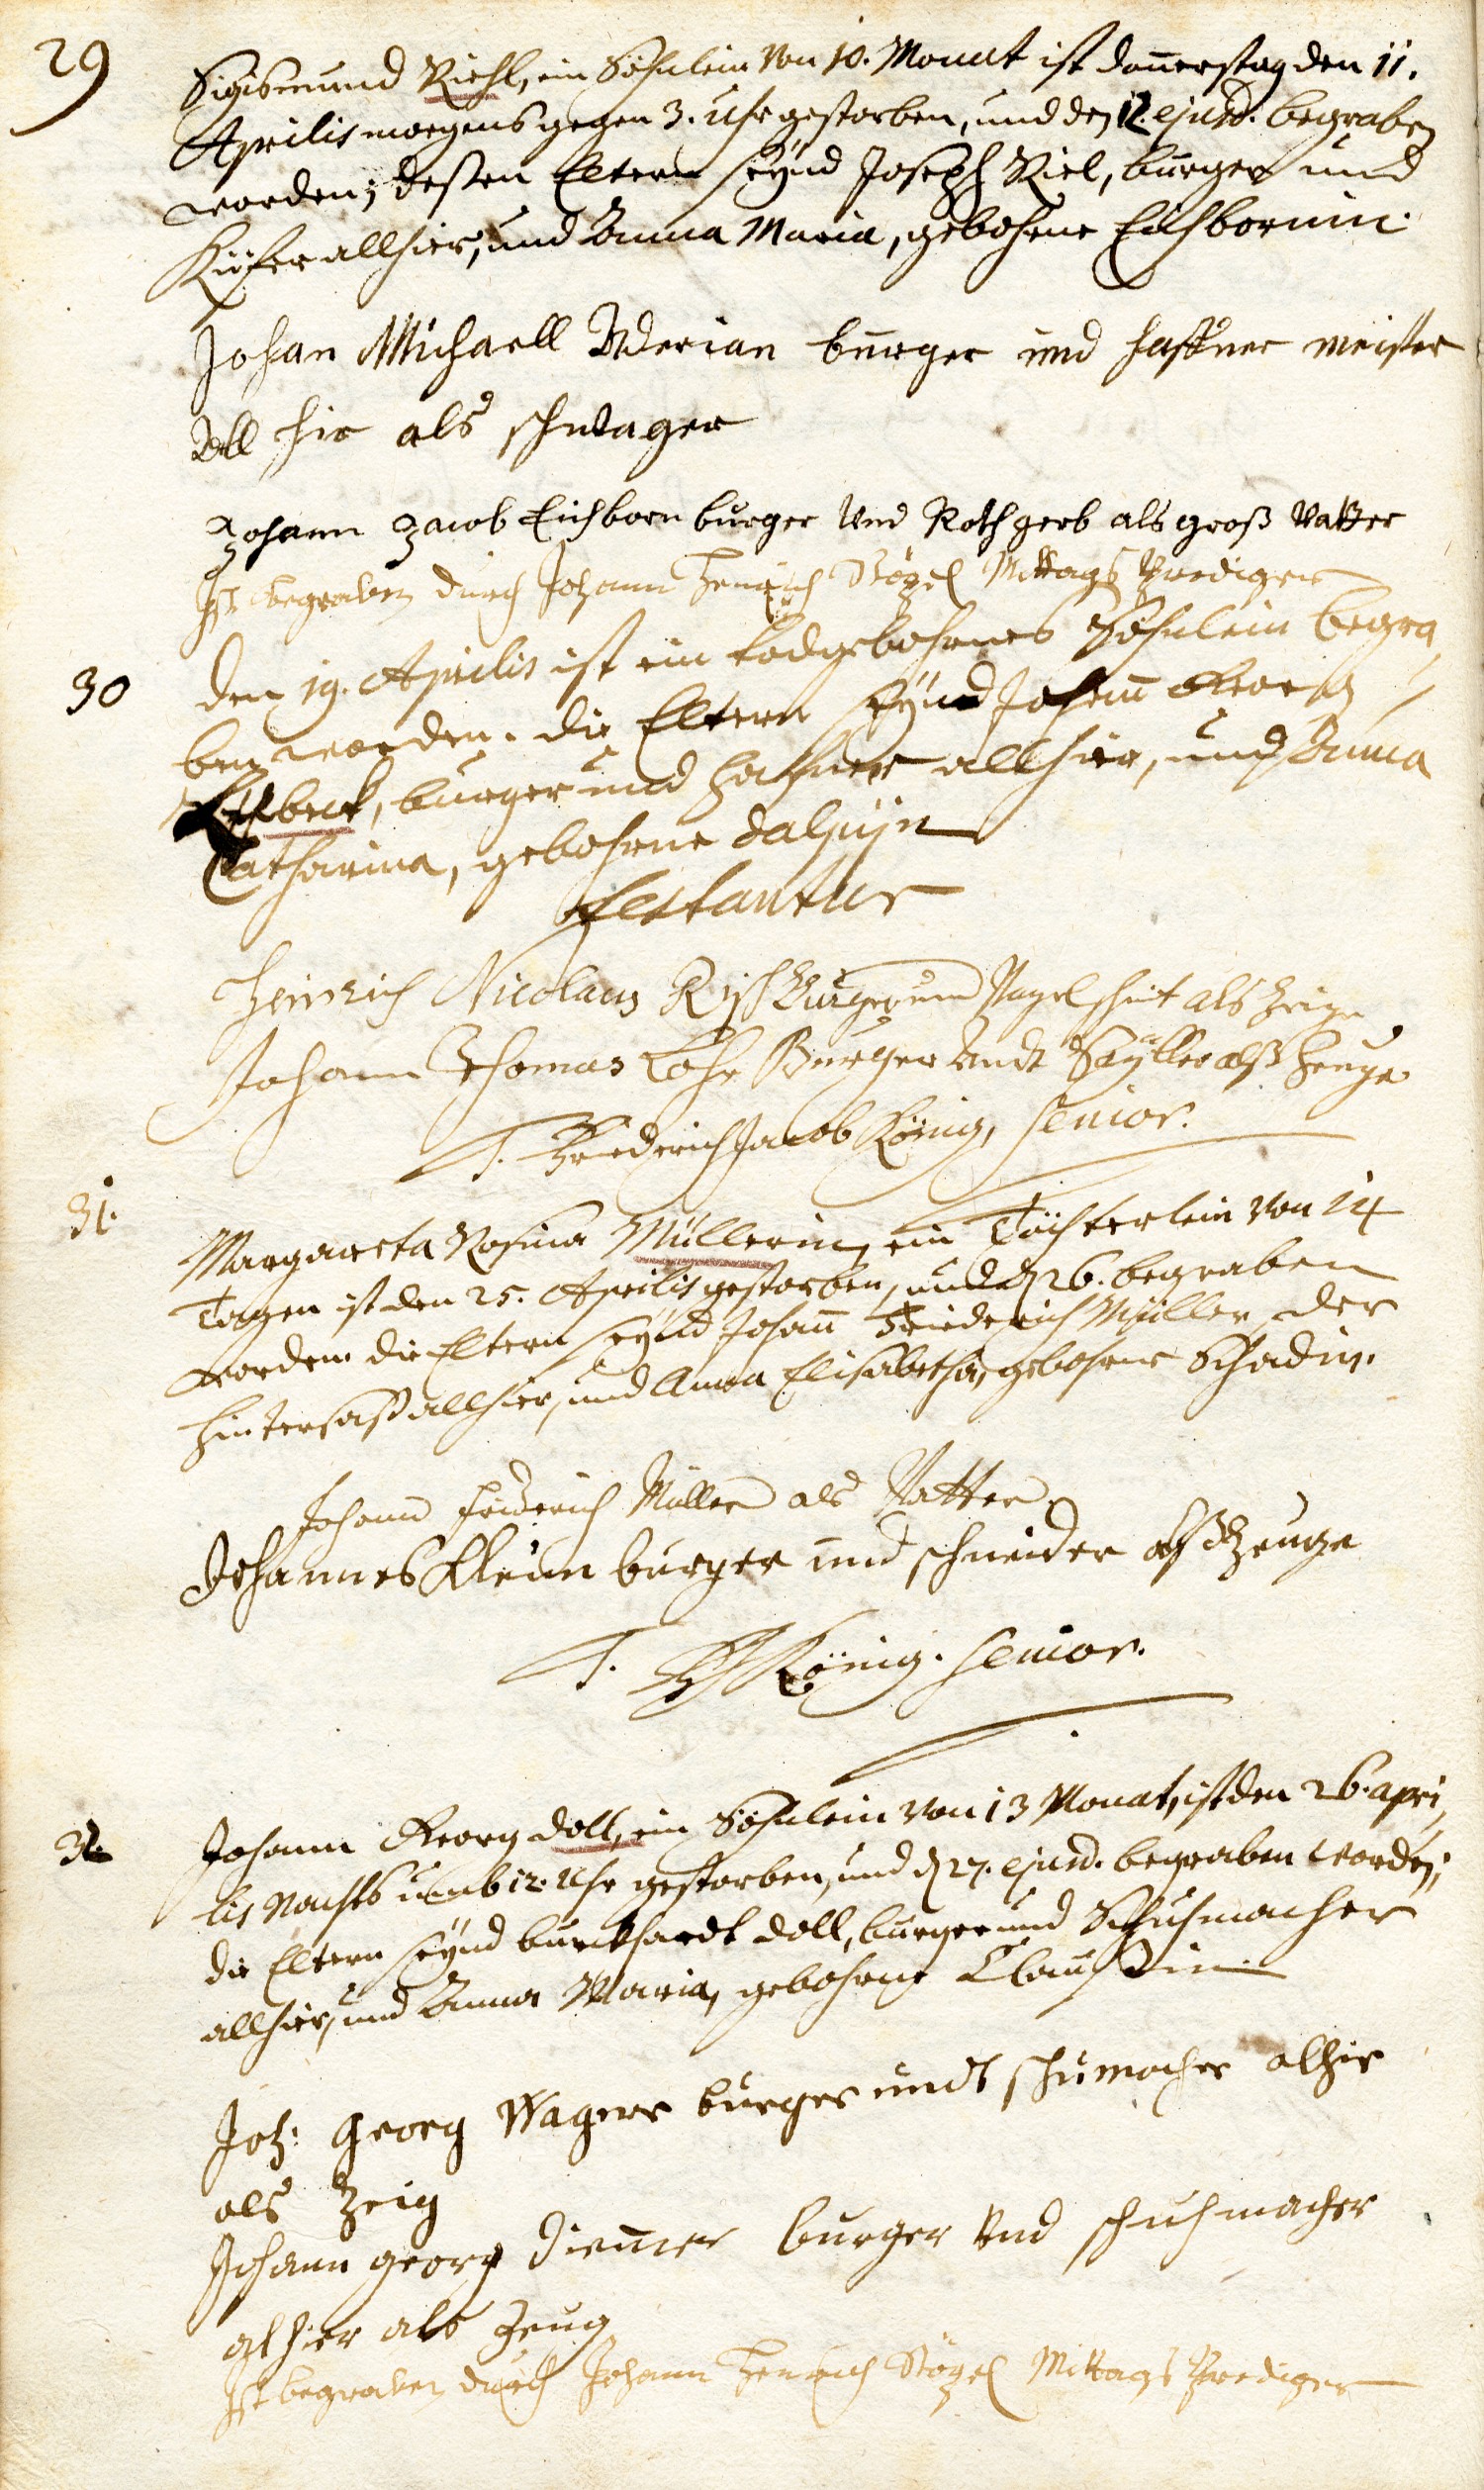 29
Sigismund Riehl, ein Söhnlein von 10. Monat ist donnerstag den 11.
Aprilis morgens gegen 3. Uhr gestorben, und den 12. ejusd. begraben
worden; deßen Eltern seynd Joseph Riel, burger und
Küfer allhier, und Anna Maria, gebohrne Eichbornin.
Johan Michaell Merian burger und haffner meister
All hir als schwager
Johann Jacob Eichborn burger Vnd Rothgerb als groß Vatter
Ist begraben durch Johann Henrich Mittags Prediger
30
den 19. Aprilis ist ein todgebohrnes Söhnlein begra
ben worden. die Eltern seynd Johann Georg
burger und Hafner allhier, und Anna
Catharina, gebohrne
Testantur
Heinrich Nicolaus Burger und Nagelschmit als Zeige
Johann Thomas Lohr Burger Undt Seÿller alß Zeuge
T. Friederich Jacob König, Senior.
31.
Margareta Rosina Müllerin, ein Töchterlein von 14
Tagen ist den 25. Aprilis gestorben, und d 26. begraben
worden. die Eltern seynd Johann Friederich Müller der
hintersaß allhier, und Anna Elisabetha, gebohrne Schadin.
Johann Friderich Müller als Vatter
Johannes Klein burger und schneider alß Zeuge
T. FJ König. Senior.
32.
Johann Georg Doll, ein Söhnlein von 13 Monat, ist den 26. apri
lis Nachts umb 12. Uhr gestorben, und d 27. ejusd. begraben worden;
die Eltern seynd burckhardt Doll, burger und Schuhmacher
allhier, und Anna Maria, gebohrne Claußin
Joh: Georg Wagner burger undt schumacher alhir
als Zeig
Johann georg burger Vnd schuhmacher
alhier als Zeug
Ist begraben durch Johann Henrich Mittags Prediger